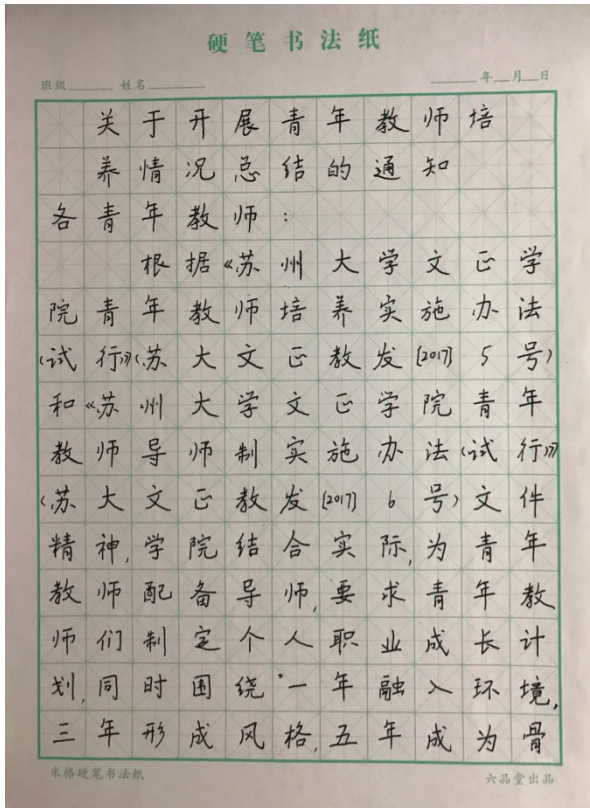 硬笔书法纸
班级 姓名 年 月 日
关于开展青年教师培
养情况总结的通知
各青年教师：
根据《苏州大学文正学
院青年教师培养实施办法
（试行）》（苏大文正教发[2017]5号）
和《苏州大学文正学院青年
教师导师制实施办法（试行）》
（苏大文正教发[2017]6号）文件
精神，学院结合实际，为青年
教师配备导师，要求青年教
师们制定个人职业成长计
划，同时围绕“一年融入环境，
三年形成风格，五年成为骨
米格硬笔书法纸 六品堂出品